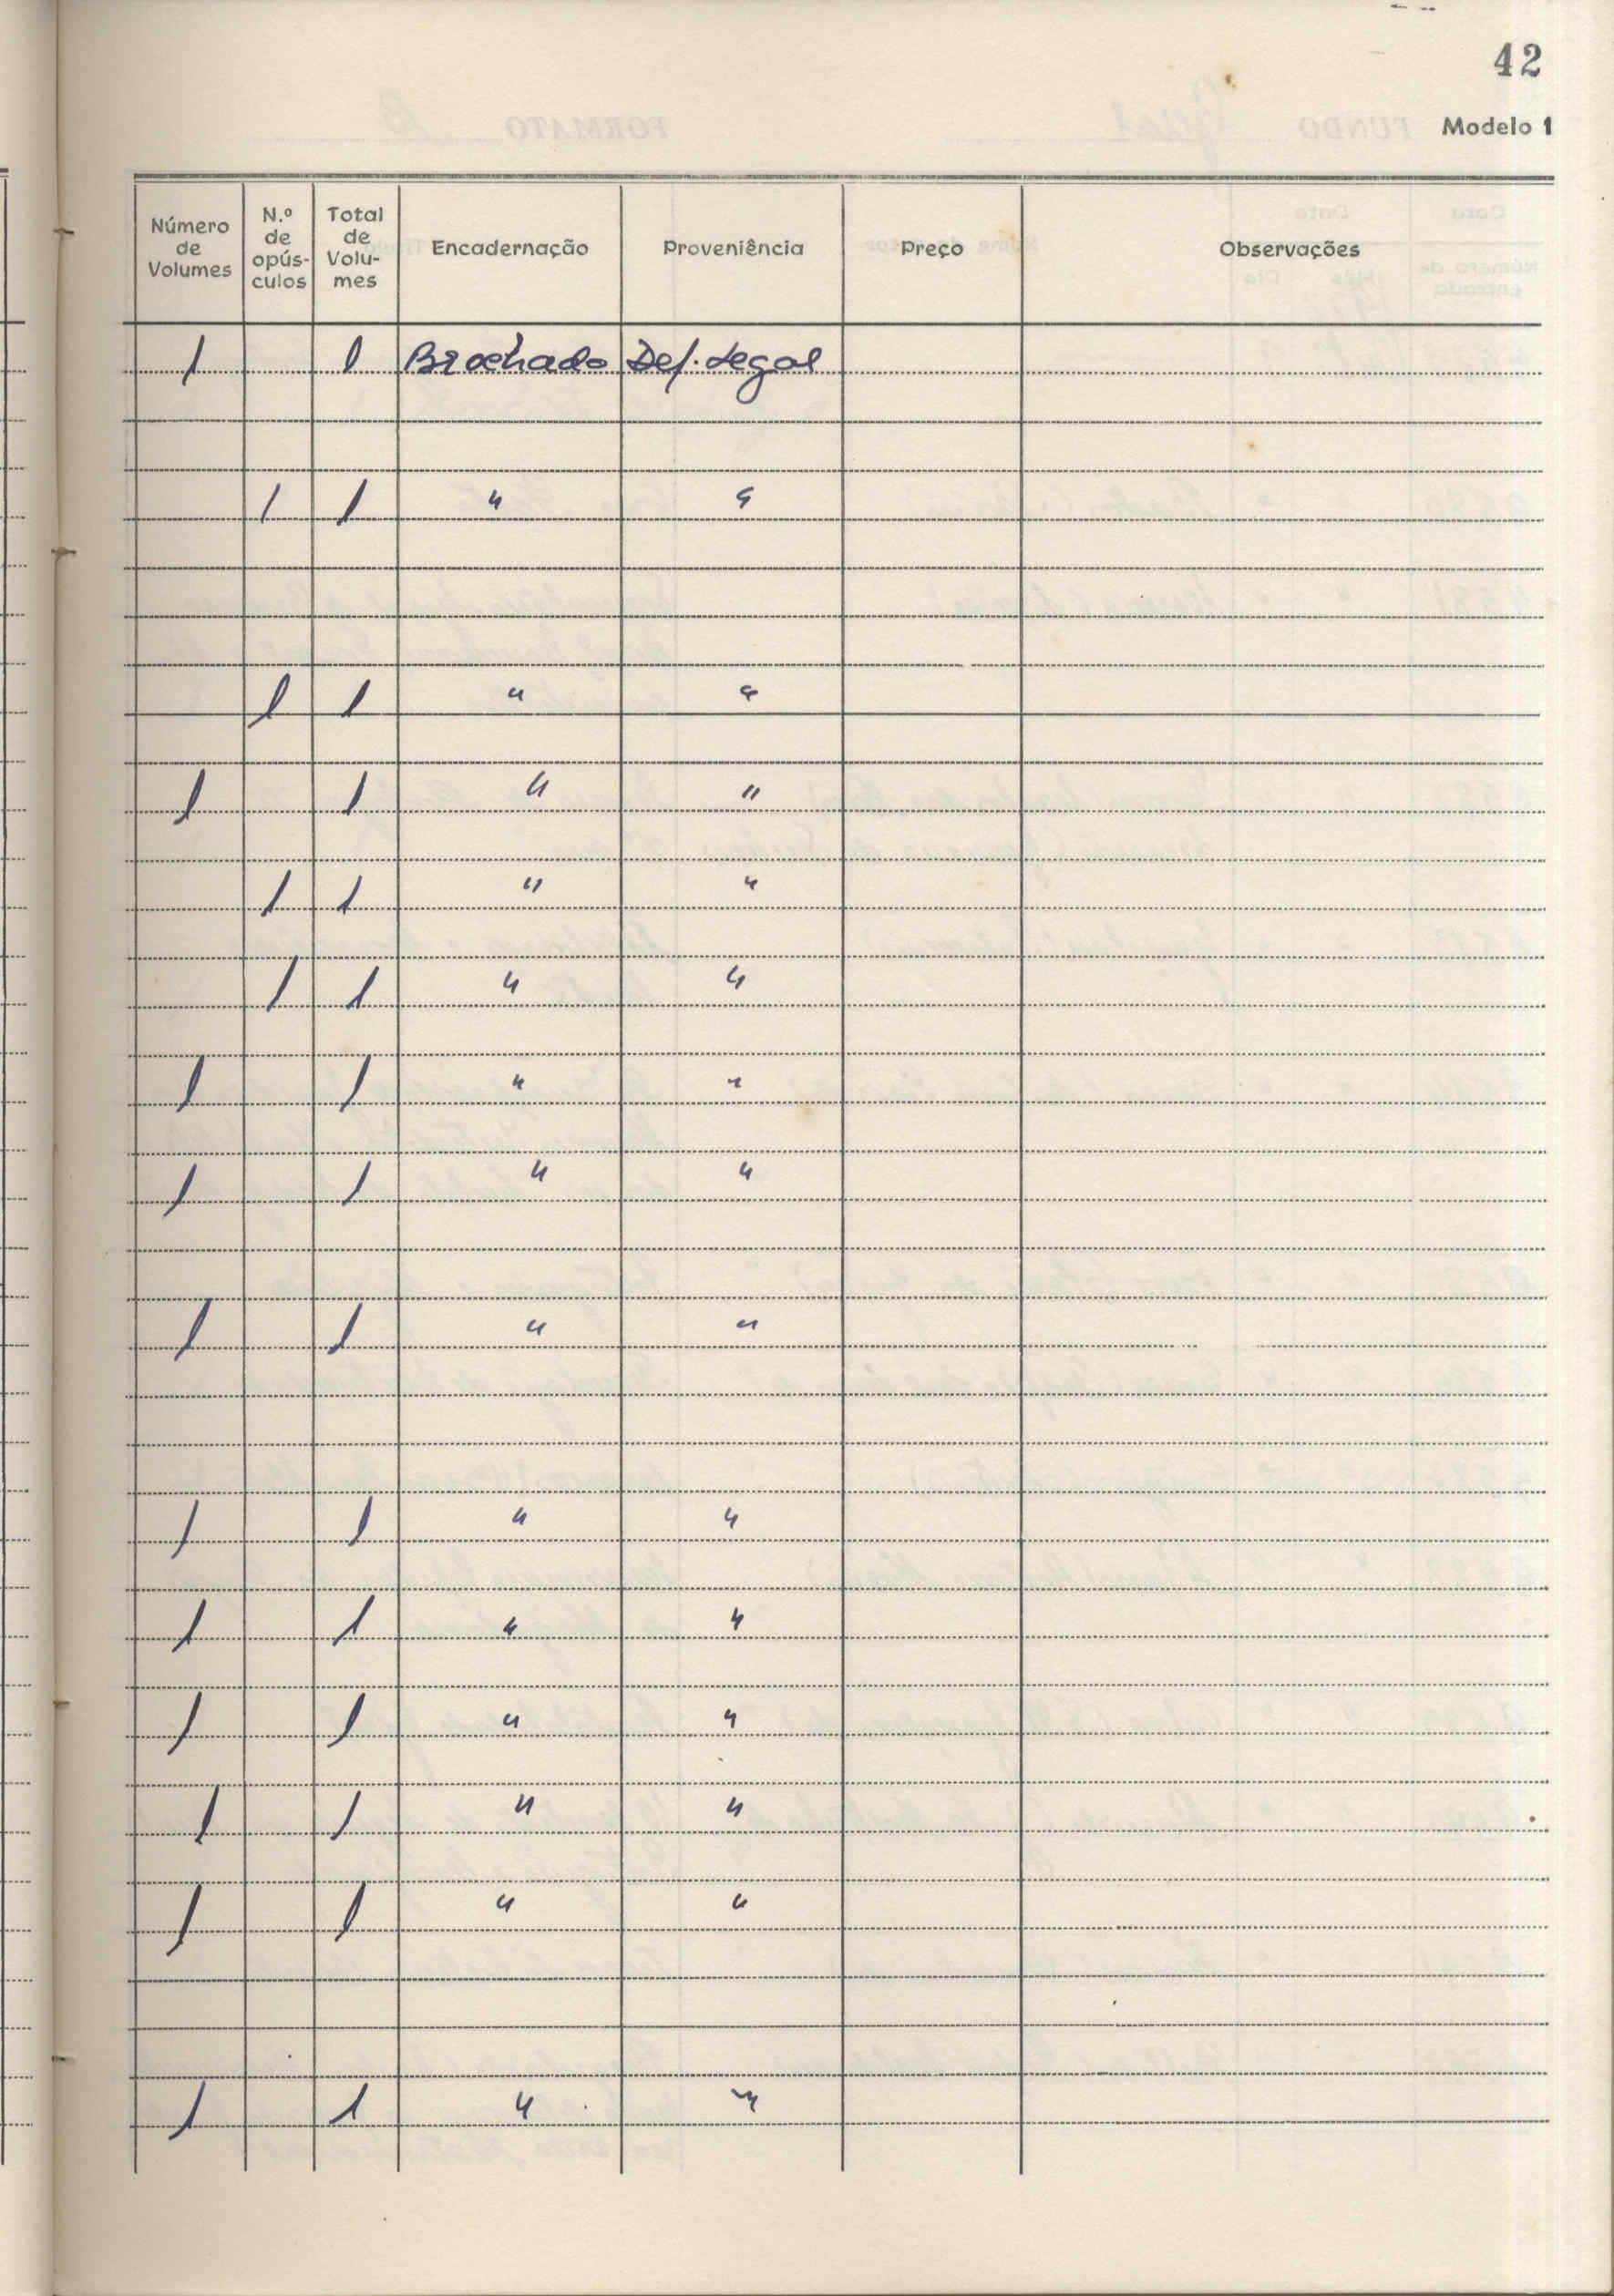 42
Modelo 1
Número de Volumes | N.º de opús-culos | Total de Volu-mes | Encadernação | Proveniência | Preço | Observações
1 | | 1 | Brochado | Dep. Legal
| 1 | 1 | " | "
| 1 | 1 | " | "
1 | | 1 | " | "
| 1 | 1 | " | "
| 1 | 1 | " | "
1 | | 1 | " | "
1 | | 1 | " | "
1 | | 1 | " | "
1 | | 1 | " | "
1 | | 1 | " | "
1 | | 1 | " | "
1 | | 1 | " | "
1 | | 1 | " | "
1 | | 1 | " | "